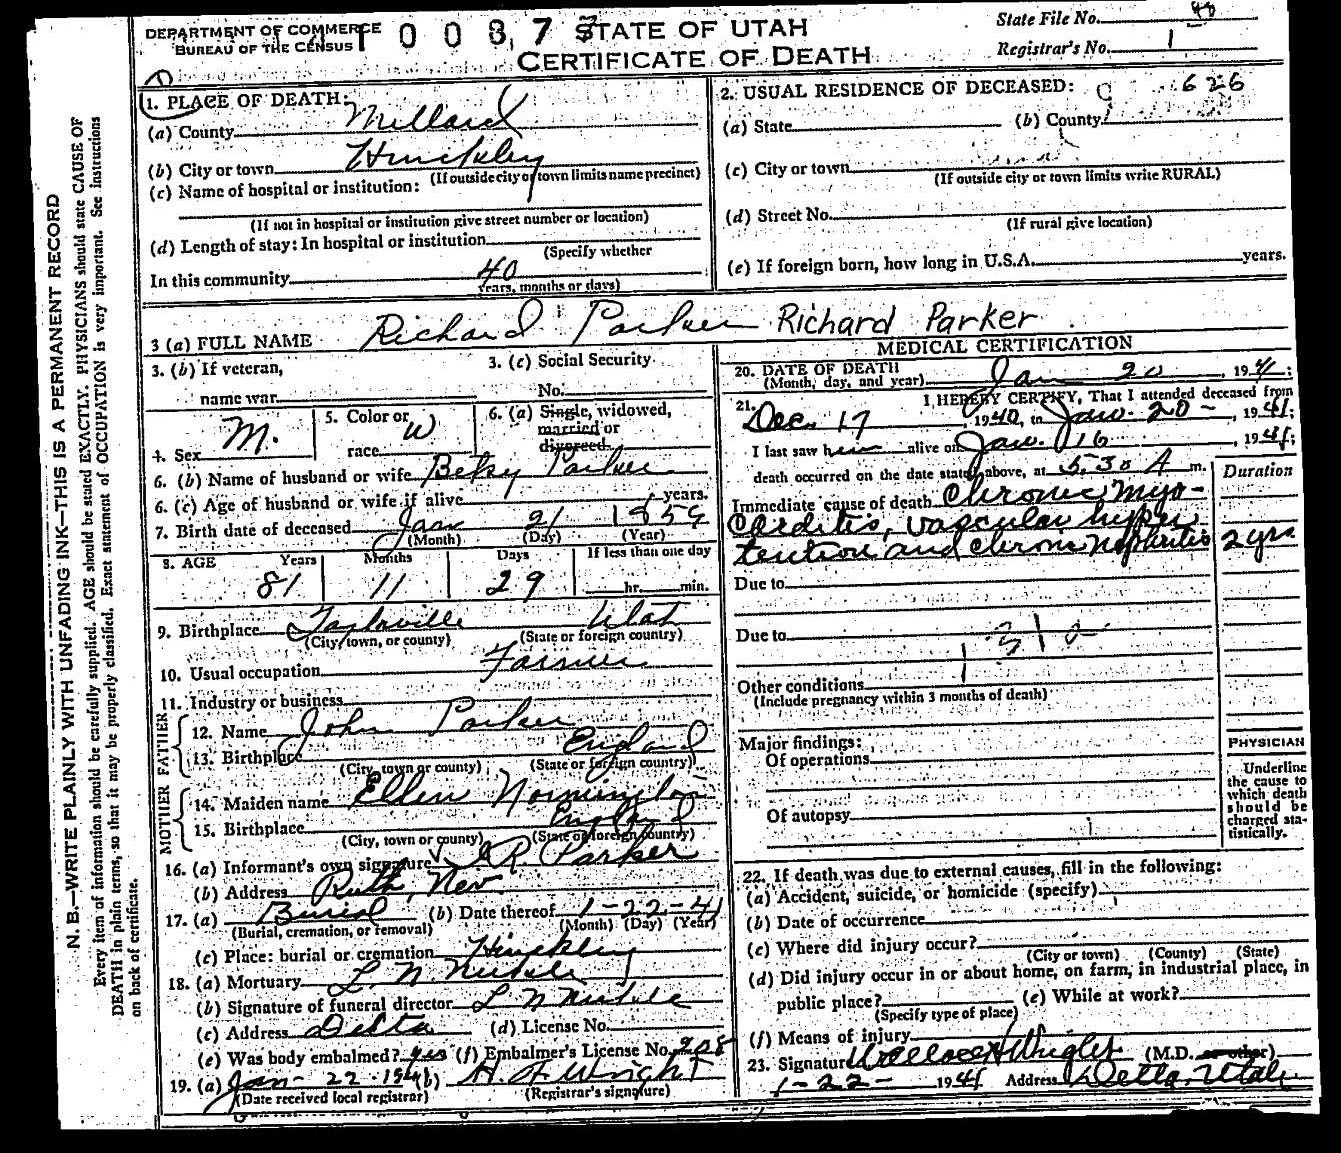 DEPARTMENT OF COMMERCE
BUREAU OF THE CENSUS
STATE OF UTAH
CERTIFICATE OF DEATH
State File No. 40
Registrar's No. 1
1. PLACE OF DEATH:
(a) County Millard
(b) City or town Hinckley
(If outside city or town limits name precinct)
(c) Name of hospital or institution:
(If not in hospital or institution give street number or location)
(d) Length of stay: In hospital or institution
(Specify whether
In this community 40
years, months or days)
2. USUAL RESIDENCE OF DECEASED: 626
(a) State (b) County
(c) City or town
(If outside city or town limits write RURAL)
(d) Street No.
(If rural give location)
(e) If foreign born, how long in U.S.A. years.
3 (a) FULL NAME Richard Parker Richard Parker
3. (b) If veteran,
name war
3. (c) Social Security
No.
4. Sex M.
5. Color or
race W
6. (a) Single, widowed,
married or
divorced
6. (b) Name of husband or wife Betsy Parker
6. (c) Age of husband or wife if alive years.
7. Birth date of deceased Jan 21 1859
(Month) (Day) (Year)
8. AGE Years Months Days If less than one day
81 11 29 hr. min.
9. Birthplace Taylorville Utah
(City, town, or county) (State or foreign country)
10. Usual occupation Farmer
11. Industry or business
FATHER
12. Name John Parker
13. Birthplace England
(City, town or county) (State or foreign country)
MOTHER
14. Maiden name Ellen Normington
15. Birthplace England
(City, town or county) (State or foreign country)
16. (a) Informant's own signature R. Parker
(b) Address Ruth, Nev
17. (a) Burial (b) Date thereof 1-22-41
(Burial, cremation, or removal) (Month) (Day) (Year)
(c) Place: burial or cremation Hinckley
18. (a) Mortuary L. N
(b) Signature of funeral director L N
(c) Address Delta (d) License No.
(e) Was body embalmed? yes (f) Embalmer's License No. 208
19. (a) Jan- 22-1941 (b) Wright
(Date received local registrar) (Registrar's signature)
MEDICAL CERTIFICATION
20. DATE OF DEATH
(Month, day, and year) Jan 20, 1941;
21. I HEREBY CERTIFY, That I attended deceased from
Dec. 17, 1940, to Jan. 20-, 1941;
I last saw him alive on Jan. 16, 1941;
death occurred on the date stated above, at 5:30 A m.
Duration
Immediate cause of death Chronic Myo-
carditis, vascular hyper
tention and chronic nephritis 2 yrs
Due to
Due to
Other conditions
(Include pregnancy within 3 months of death)
Major findings:
Of operations
Of autopsy
PHYSICIAN
Underline
the cause to
which death
should be
charged sta-
tistically.
22. If death was due to external causes, fill in the following:
(a) Accident, suicide, or homicide (specify)
(b) Date of occurrence
(c) Where did injury occur?
(City or town) (County) (State)
(d) Did injury occur in or about home, on farm, in industrial place, in
public place? (e) While at work?
(Specify type of place)
(f) Means of injury
23. Signature Wright (M.D. or other)
1-22- 1941 Address Delta, Utah
N. B.—WRITE PLAINLY WITH UNFADING INK—THIS IS A PERMANENT RECORD
Every item of information should be carefully supplied. AGE should be stated EXACTLY. PHYSICIANS should state CAUSE OF
DEATH in plain terms, so that it may be properly classified. Exact statement of OCCUPATION is very important. See instructions
on back of certificate.